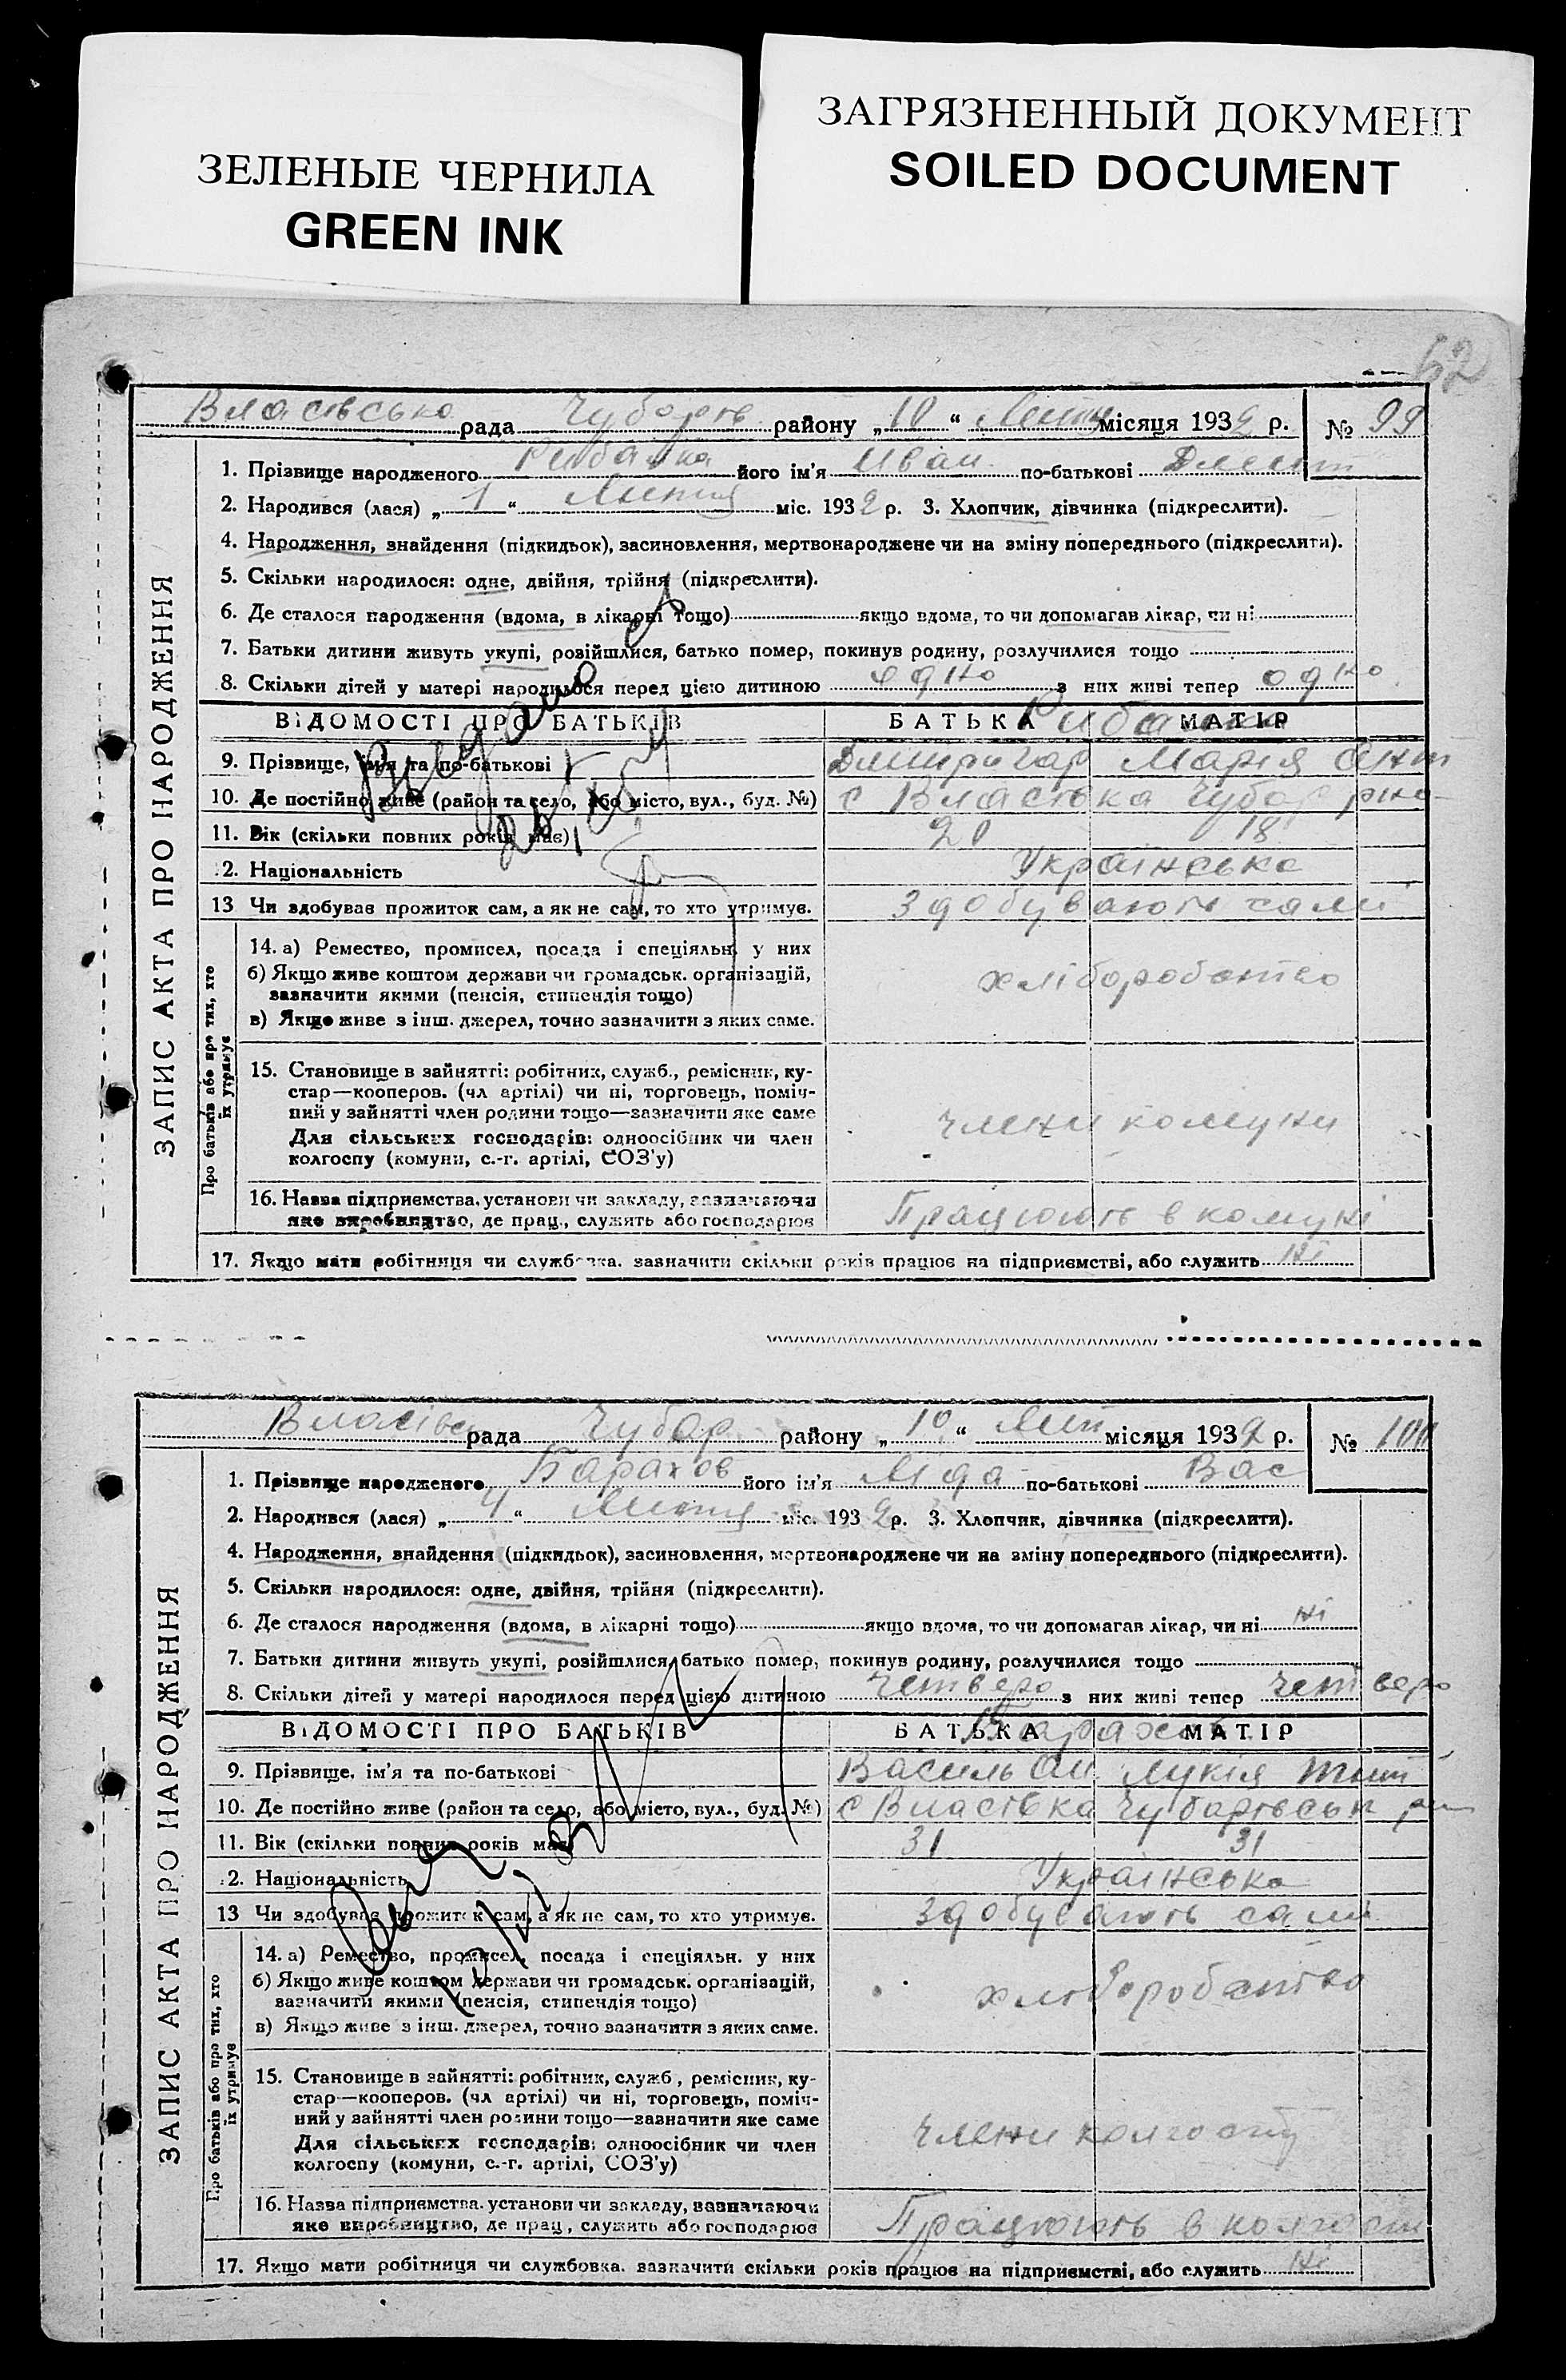 ЗЕЛЕНЫЕ ЧЕРНИЛА
GREEN INK
ЗАГРЯЗНЕННЫЙ ДОКУМЕНТ
SOILED DOCUMENT
62
Власівсько рада Чубарів району „10“ Липня місяця 1932 р. № 99
ЗАПИС АКТА ПРО НАРОДЖЕННЯ
1. Прізвище народженого Рибалка його ім'я Иван по-батькові Дмит
2. Народився (лася) „1“ Липня міс. 1932 р. 3. Хлопчик, дівчинка (підкреслити).
4. Народження, знайдення (підкидьок), засиновлення, мертвонароджене чи на зміну попереднього (підкреслити).
5. Скільки народилося: одне, двійня, трійня (підкреслити).
6. Де сталося народження (вдома, в лікарні тощо) якщо вдома, то чи допомагав лікар, чи ні
7. Батьки дитини живуть укупі, розійшлися, батько помер, покинув родину, розлучилися тощо
8. Скільки дітей у матері народилося перед цією дитиною одно з них живі тепер одно
ВІДОМОСТІ ПРО БАТЬКІВ БАТЬКА МАТІР
9. Прізвище, ім'я та по-батькові Мария Ант
10. Де постійно живе (район та село, або місто, вул., буд. №) с Власівка Чубар
11. Вік (скільки повних років має) 20 18
12. Національність Українська
13 Чи здобував прожиток сам, а як не сам, то хто утримує. Здобувають сами
Про батьків або про тих, хто їх утримує
14. а) Ремество, промисел, посада і спеціяльн. у них
б) Якщо живе коштом держави чи громадськ. організацій,
зазначити якими (пенсія, стипендія тощо)
хліборобство
в) Якщо живе з інш. джерел, точно зазначити з яких саме.
15. Становище в зайнятті: робітник, служб., ремісник, ку-
стар—кооперов. (чл артілі) чи ні, торговець, поміч-
ний у зайнятті член родини тощо—зазначити яке саме
Для сільських господарів: одноосібник чи член
колгоспу (комуни, с.-г. артілі, СОЗ'у)
члени комуни
16. Назва підприємства, установи чи закладу, зазначаючи
яке виробництво, де прац., служять або господарює Працюють в комуні
17. Якщо мати робітниця чи службовка. зазначити скільки років працює на підприємстві, або служить ні
Власівс рада Чубар району „10“ Лип місяця 1932 р. № 100
ЗАПИС АКТА ПРО НАРОДЖЕННЯ
1. Прізвище народженого Барахов його ім'я Ліда по-батькові Вас
2. Народився (лася) „4“ Липня міс. 1932 р. 3. Хлопчик, дівчинка (підкреслити).
4. Народження, знайдення (підкидьок), засиновлення, мертвонароджене чи на зміну попереднього (підкреслити).
5. Скільки народилося: одне, двійня, трійня (підкреслити).
6. Де сталося народження (вдома, в лікарні тощо) якщо вдома, то чи допомагав лікар, чи ні ні
7. Батьки дитини живуть укупі, розійшлися, батько помер, покинув родину, розлучилися тощо
8. Скільки дітей у матері народилося перед цією дитиною четверо з них живі тепер четверо
ВІДОМОСТІ ПРО БАТЬКІВ БАТЬКА МАТІР
9. Прізвище, ім'я та по-батькові Василь Лукія
10. Де постійно живе (район та село, або місто, вул., буд. №) с Власівка Чубарівськ
11. Вік (скільки повних років має) 31 31
12. Національність Українська
13 Чи здобував прожиток сам, а як не сам, то хто утримує. Здобувають сами
Про батьків або про тих, хто їх утримує
14. а) Ремество, промисел, посада і спеціяльн. у них
б) Якщо живе коштом держави чи громадськ. організацій,
зазначити якими (пенсія, стипендія тощо)
хліборобство
в) Якщо живе з інш. джерел, точно зазначити з яких саме.
15. Становище в зайнятті: робітник, служб, ремісник, ку-
стар—кооперов. (чл артілі) чи ні, торговець, поміч-
ний у зайнятті член родини тощо—зазначити яке саме
Для сільських господарів: одноосібник чи член
колгоспу (комуни, с.-г. артілі, СОЗ'у)
члени колгоспу
16. Назва підприємства. установи чи закладу, зазначаючи
яке виробництво, де прац, служить або господарює Працюють в колгосп
17. Якщо мати робітниця чи службовка. зазначити скільки років працює на підприємстві, або служить ні